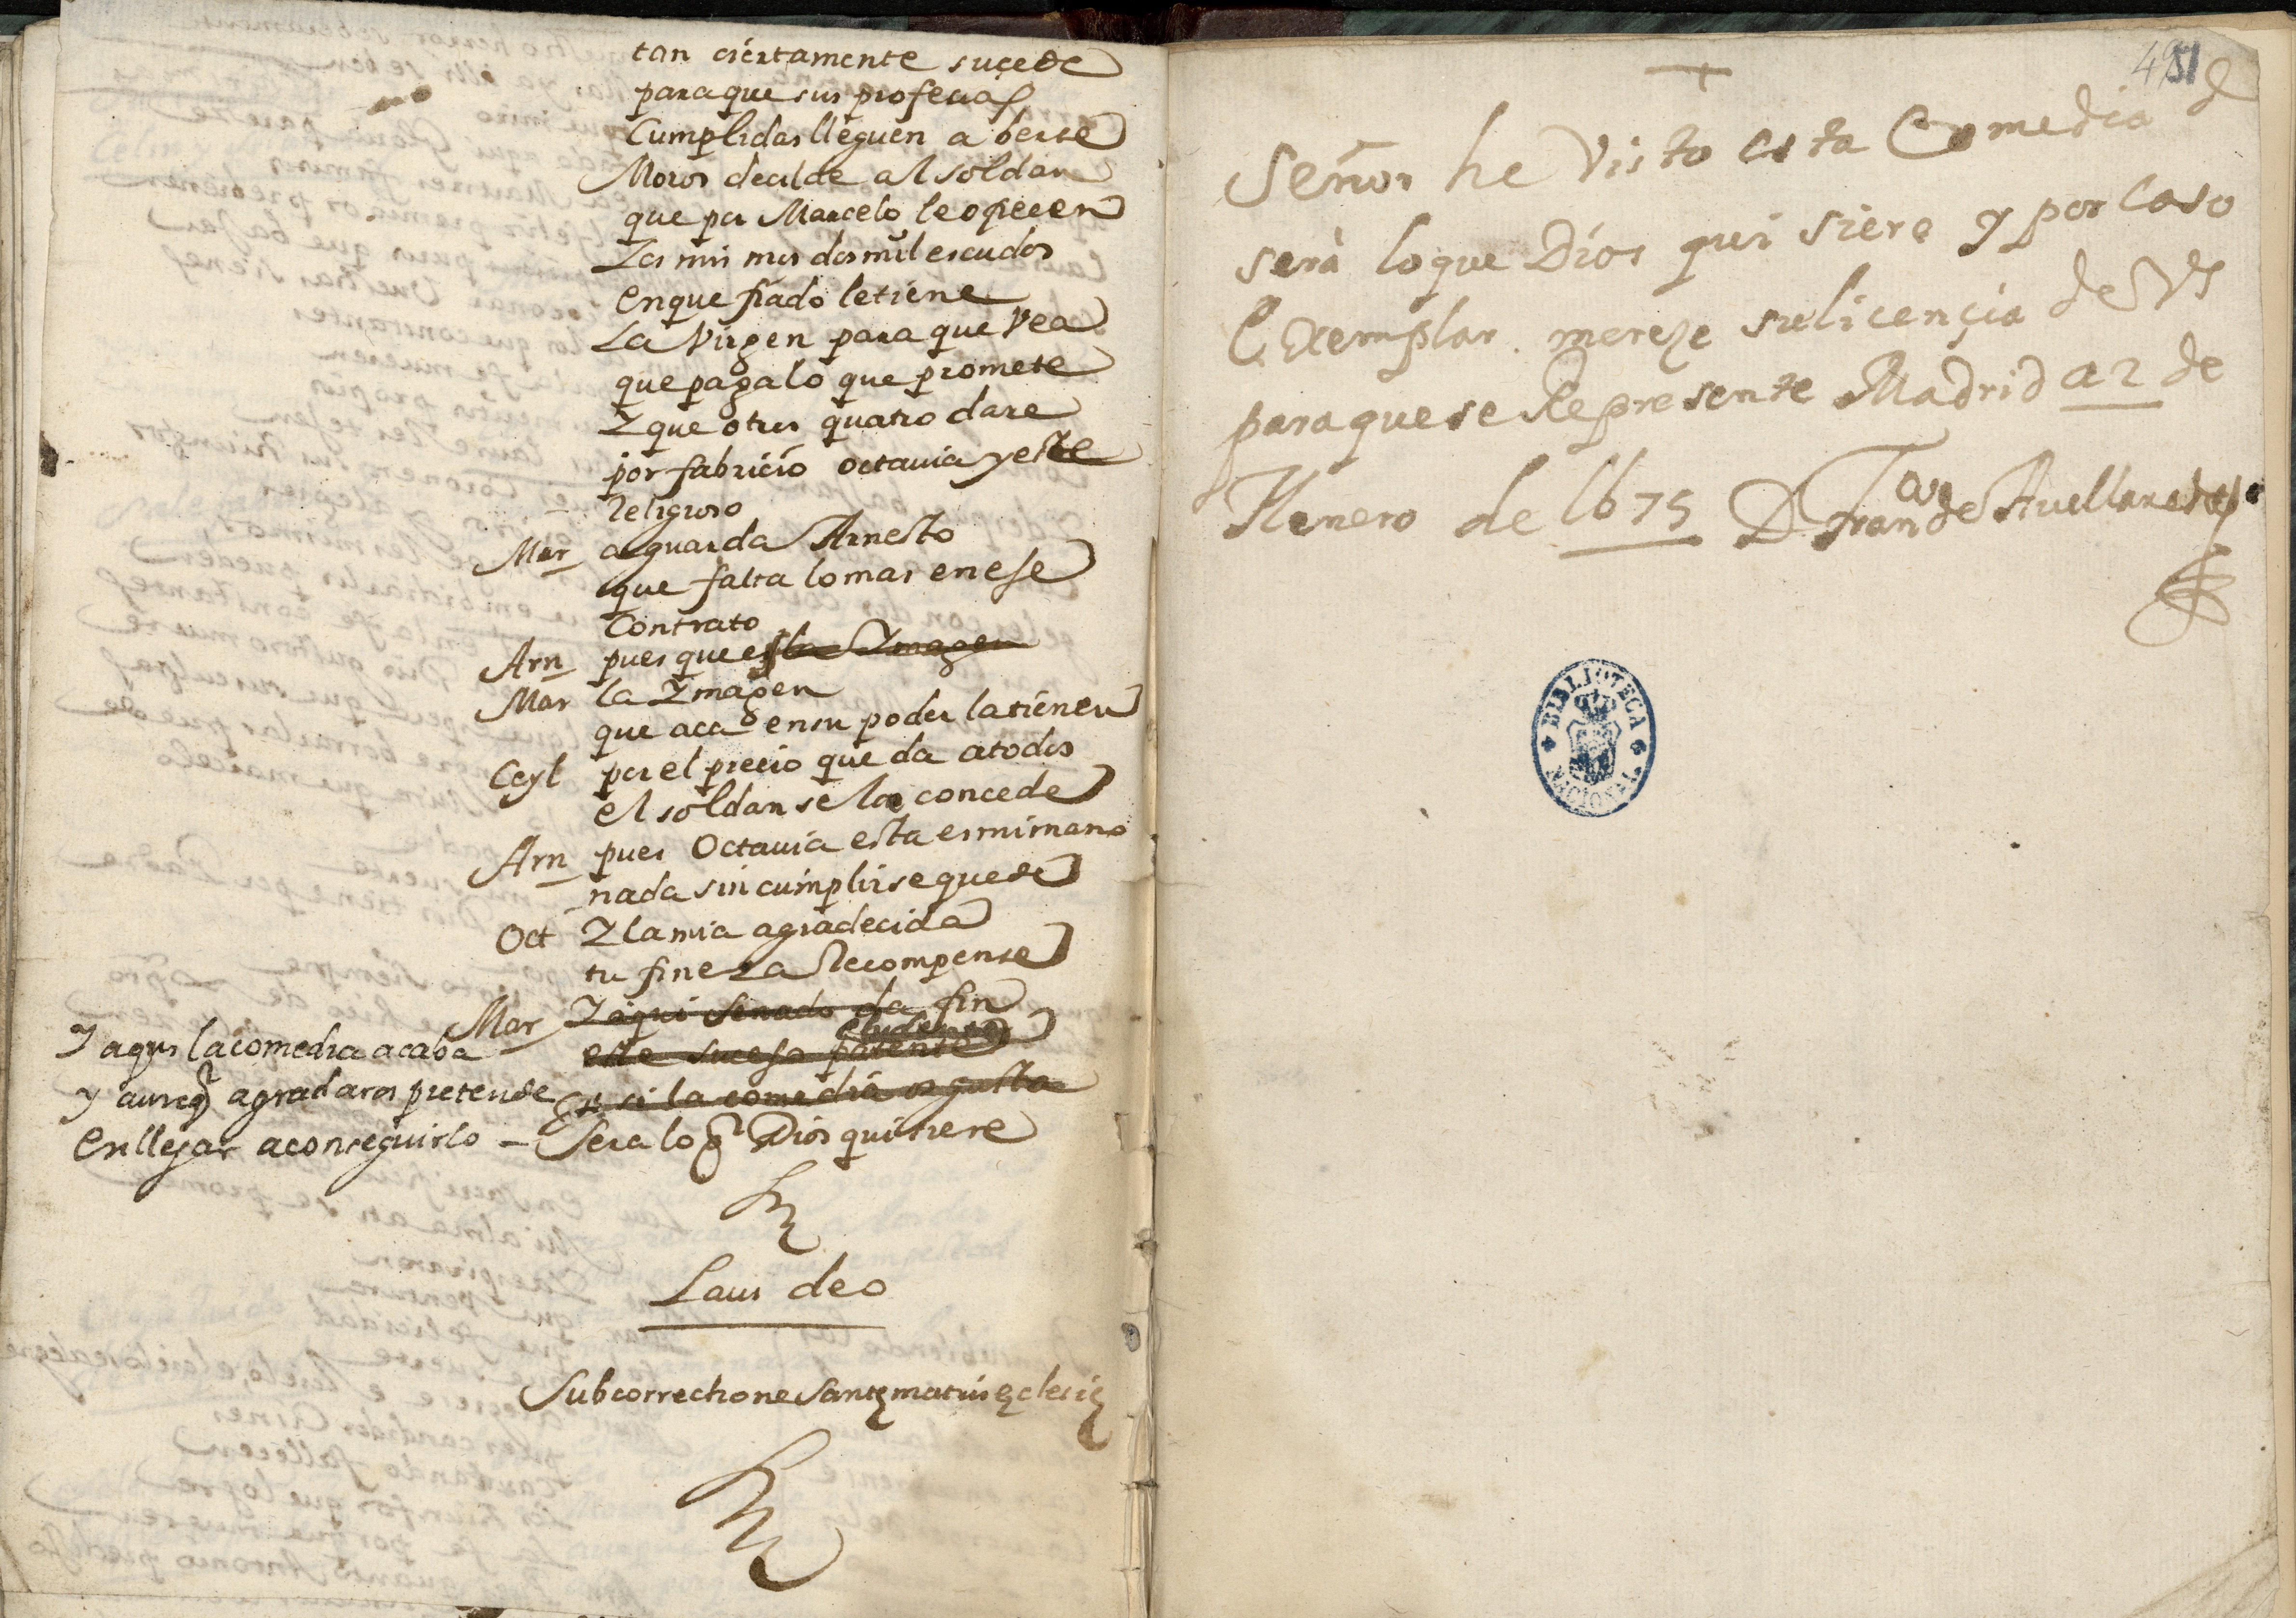 tan ciertamente suçede
para que sus profecias
Cumplidas lleguen a berse
Moros decilde al soldan
que por Marcelo le ofrecen
Los mis mos dos mil escudos
en que fiado le tiene
La Virgen para que Vea
que paga lo que promete
Y que otros quatro dare
por fabricio octauia y este
Religioso
Mar aguarda Arnesto
que falta lo mas en ese
Contrato
Arn pues que es la Ymagen
Mar la Ymagen
que aca en su poder la tienen
Ceyl por el precio que da a todos
el soldan se la concede
Arn pues Octauia esta es mi mano
nada sin cumplirse quede
Oct Y la mia agradecida
tu fineza Recompense
Mar Y aqui senado da fin
este suceso patente
Y aqui la comedia acaba
y si la comedia os gusta
y aunq agradaros pretende
En llegar a conseguirlo – Sera lo q Dios quisiere
Laus deo
Sub correctione Santę matris ęclesię
451
Señor he Visto esta Comedia d
será lo que Dios qui siere y por Caso
Exemplar mereze su licençia de VS
para que se Represente Madrid a 2 de
Henero de 1675 D Franco de Auellaneda
BIBLIOTECA NACIONAL